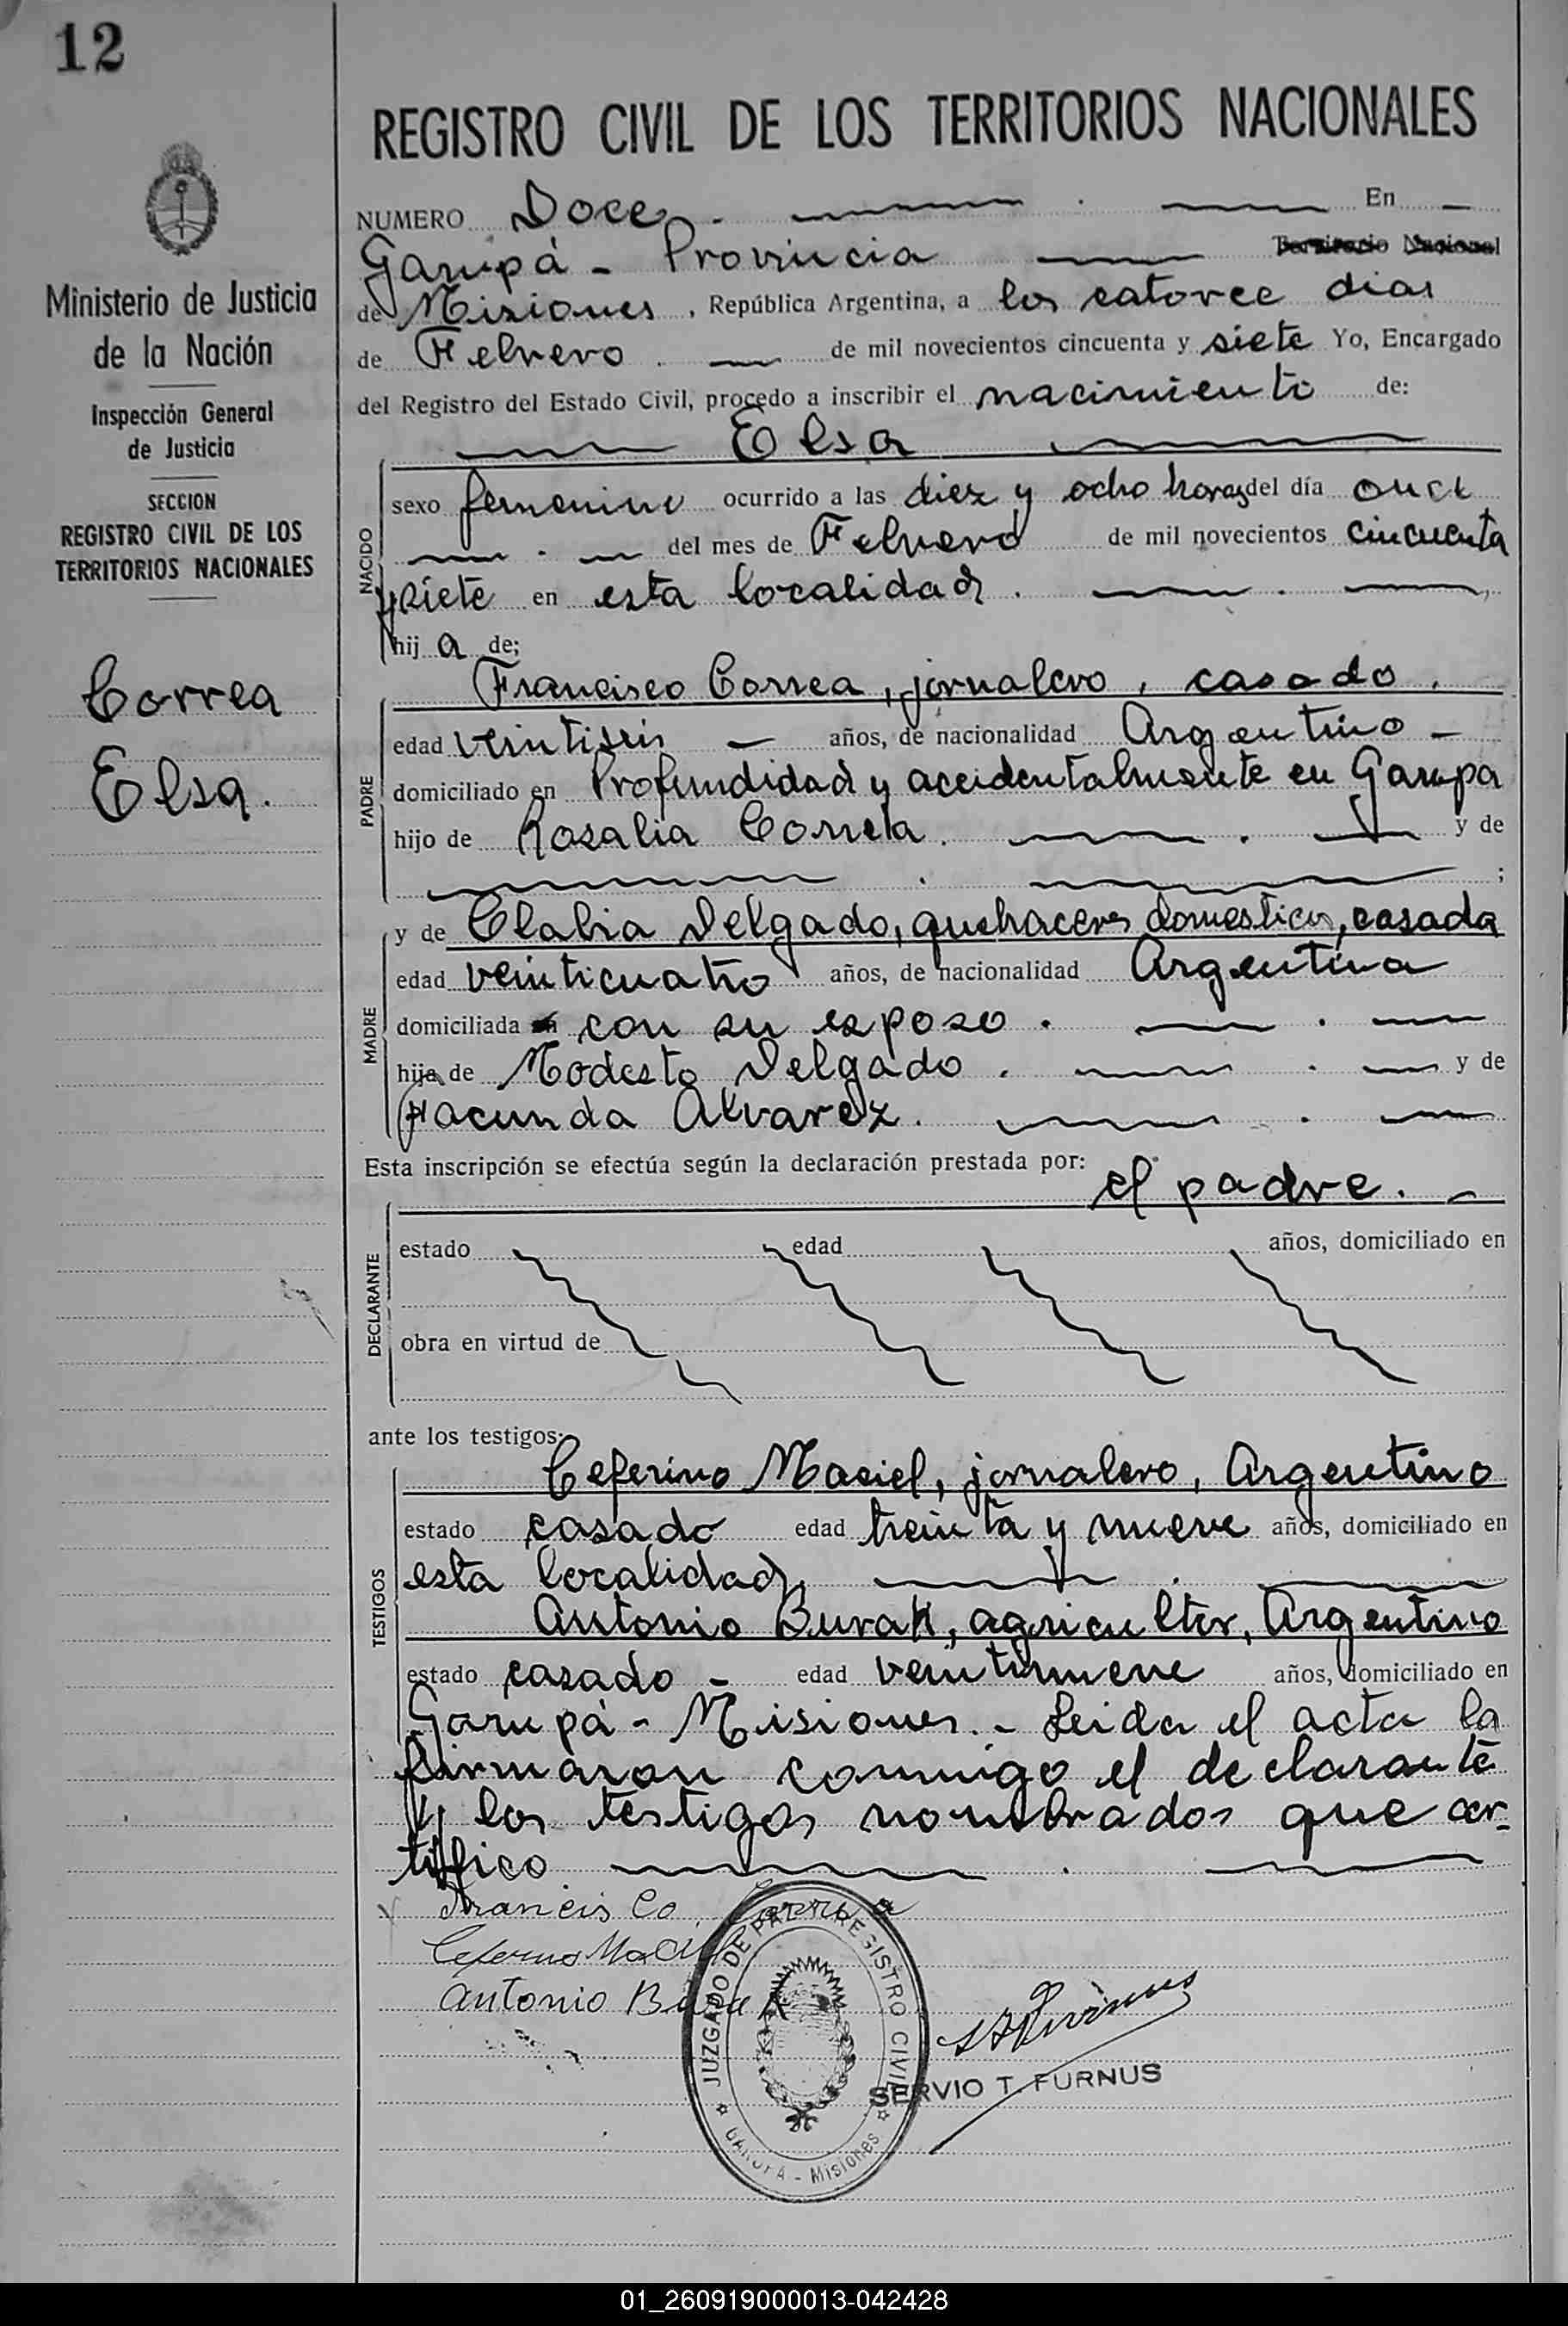 12
Ministerio de Justicia
de la Nación
Inspección General
de Justicia
SECCION
REGISTRO CIVIL DE LOS
TERRITORIOS NACIONALES
Correa
Elsa.
REGISTRO CIVIL DE LOS TERRITORIOS NACIONALES
NUMERO Doce. En
Garupá - Provincia Territorio Nacional
de Misiones, República Argentina, a los catorce dias
de Febrero de mil novecientos cincuenta y siete Yo, Encargado
del Registro del Estado Civil, procedo a inscribir el nacimiento de:
Elsa
NACIDO
sexo femenino ocurrido a las diez y ocho horas del día once
del mes de Febrero de mil novecientos cincuenta
y siete en esta localidad.
hij a de;
PADRE
Francisco Correa, jornalero, casado.
edad veintiseis años, de nacionalidad Argentino
domiciliado en Profundidad y accidentalmente en Garupa
hijo de Rosalia Correa. y de
;
MADRE
y de Clabia Delgado, quehaceres domesticos, casada
edad veinticuatro años, de nacionalidad Argentina
domiciliada en con su esposo.
hija de Modesto Delgado. y de
Facunda Alvarez.
Esta inscripción se efectúa según la declaración prestada por: el padre.
DECLARANTE
estado edad años, domiciliado en
obra en virtud de
ante los testigos:
TESTIGOS
Ceferino Maciel, jornalero, Argentino
estado casado edad treinta y nueve años, domiciliado en
esta localidad,
Antonio Burak, agricultor, Argentino
estado casado - edad veintinueve años, domiciliado en
Garupá - Misiones. - Leida el acta la
firmaron conmigo el declarante
y los testigos nombrados que cer-
tifico
Francis Co Correa
Ceferino Maciel
Antonio Burak
JUZGADO DE PAZ Y REGISTRO CIVIL
GARUPA - Misiones
SERVIO T. FURNUS
01_260919000013-042428